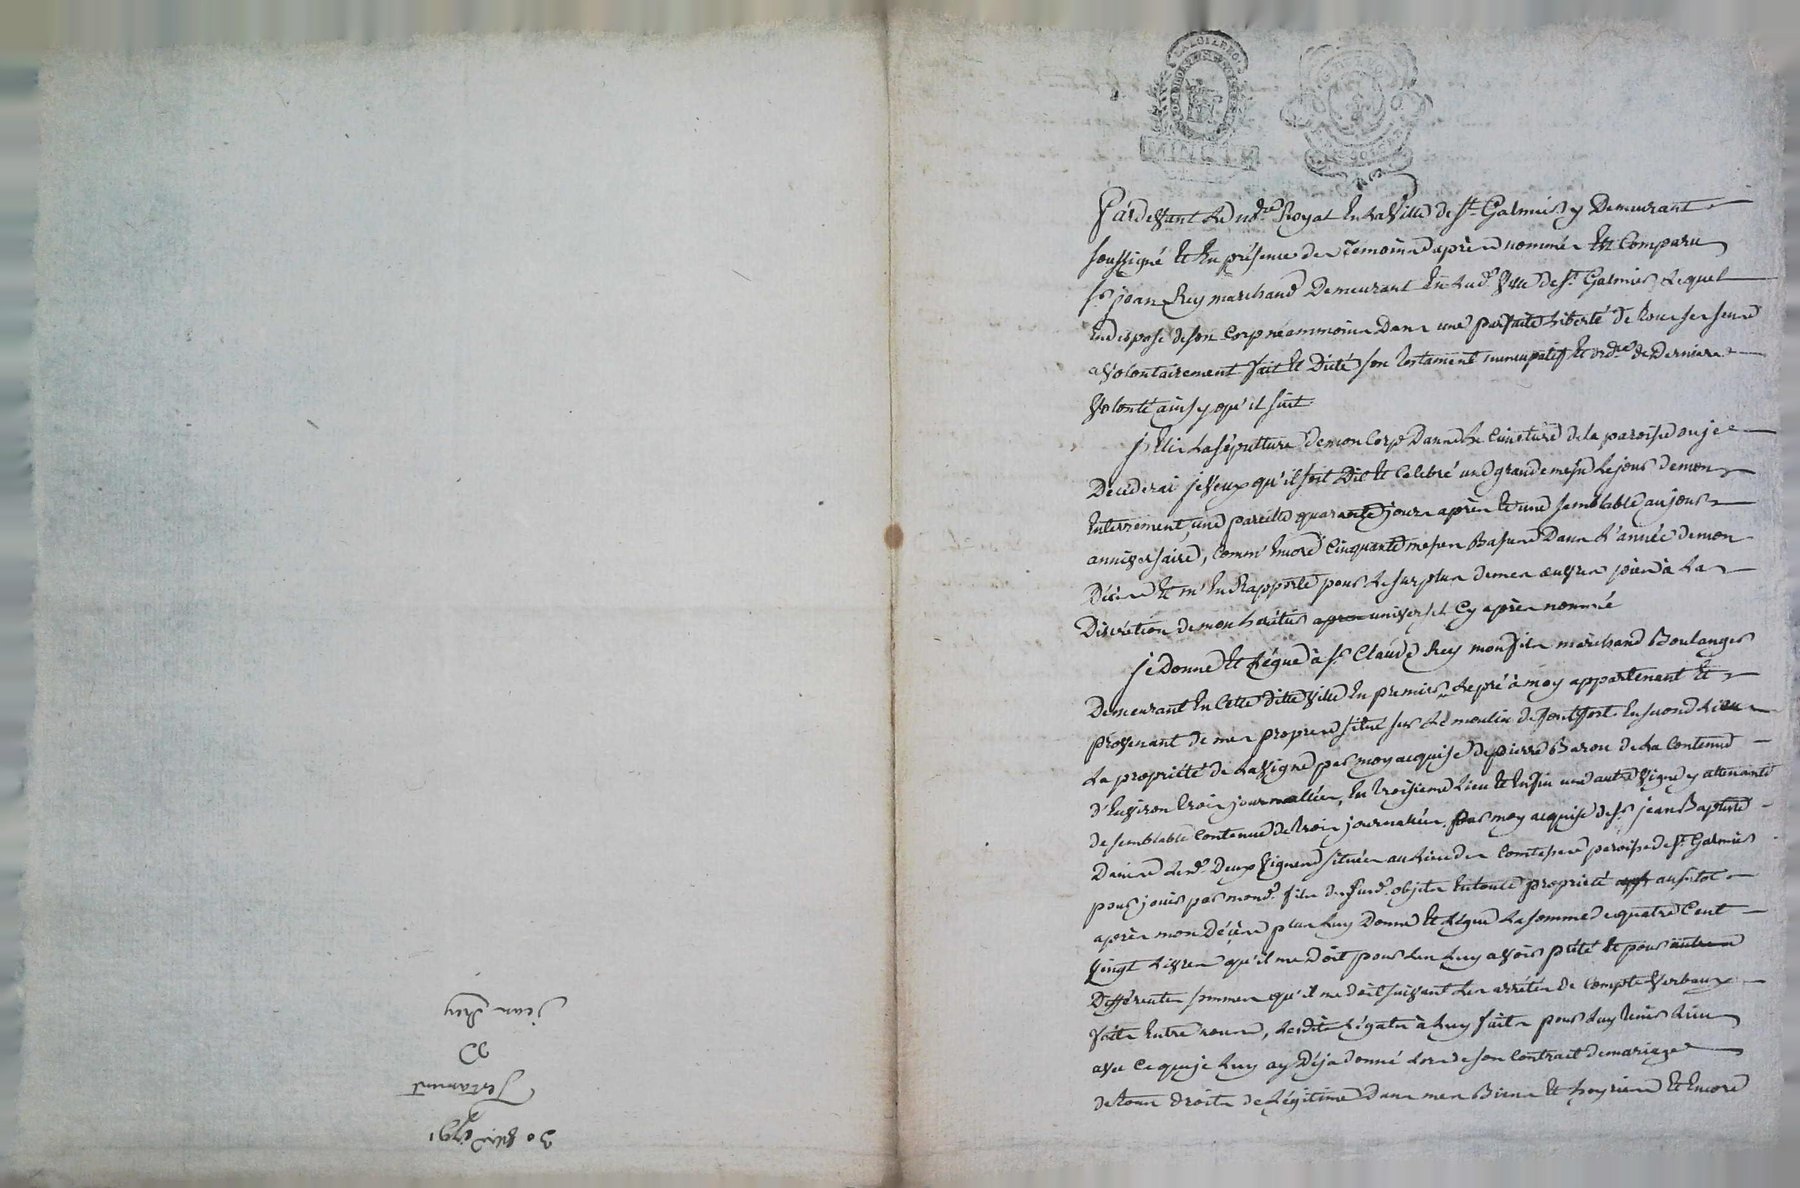 30 1791
Testament
De
jean Rey
LA LOI ET LE ROI
Pardevant Le nore Royal En La Ville de St Galmier y Demeurant
soussigné Et En présence des Temoins après nommés Est Comparu
Sr jean Rey marchand Demeurant En Lad. Ville de St Galmier, Lequel
Indispose de son Corp néammoins Dans une parfaite Liberté de tous ses sens
a Volontairement fait Et Dicté son testament nuncupatif Et ordre de Derniere
Volonté ainsy qu'il suit
j'Elis La sépulture de mon Corp Dans Le Cimetiere de la paroisse ou je
Décéderai je Veux qu'il soit Dit Et Célébré une grande messe Le jour de mon
Enterrement, une pareille quarante jours après Et une semblable au jour
anniversaire, Comm' Encore Cinquante messes Basses Dans L'année de mon
Décès Et m'En Rapporte pour Le surplus de mes œuvres pies à La
Discrétion de mon héritier universel Cy après nommé
je Donne Et Légue à Sr Claude Rey mon fils marchand Boulanger
Demeurant En Cette ditte Ville En premier Le pré à moy appartenant Et
provenant de mes propres situé sur Le moulin de fontfort En second Lieu
La propriété de La Vigne par moy acquise de pierre Baron de La Contenue
d'Environ trois journallées, En troisieme Lieu Et Enfin une autre Vigne y attenante
de semblable Contenue de trois journalées par moy acquise de Sr jean Baptiste
Lesd. Deux Vignes situées au Lieu des paroisse de St Galmier
pour jouir par mond. fils des susd. objets En toute propriété aussitot
après mon Décès plus Luy Donne Et Légue La somme de quatre Cent
Vingt Livres qu'il me Doit pour Les Luy avoir prêté Et pour
Différentes sommes qu'il me doit suivant Les arrêtés de Compte Verbaux
faits Entre nous, Lesdits Légats à Luy faits pour Luy tenir Lieu
avec Ce que je Luy ay Déja donné Lors de son Contrait de mariage
de tous droits de Légitime Dans mes Biens Et hoyries Et Encore